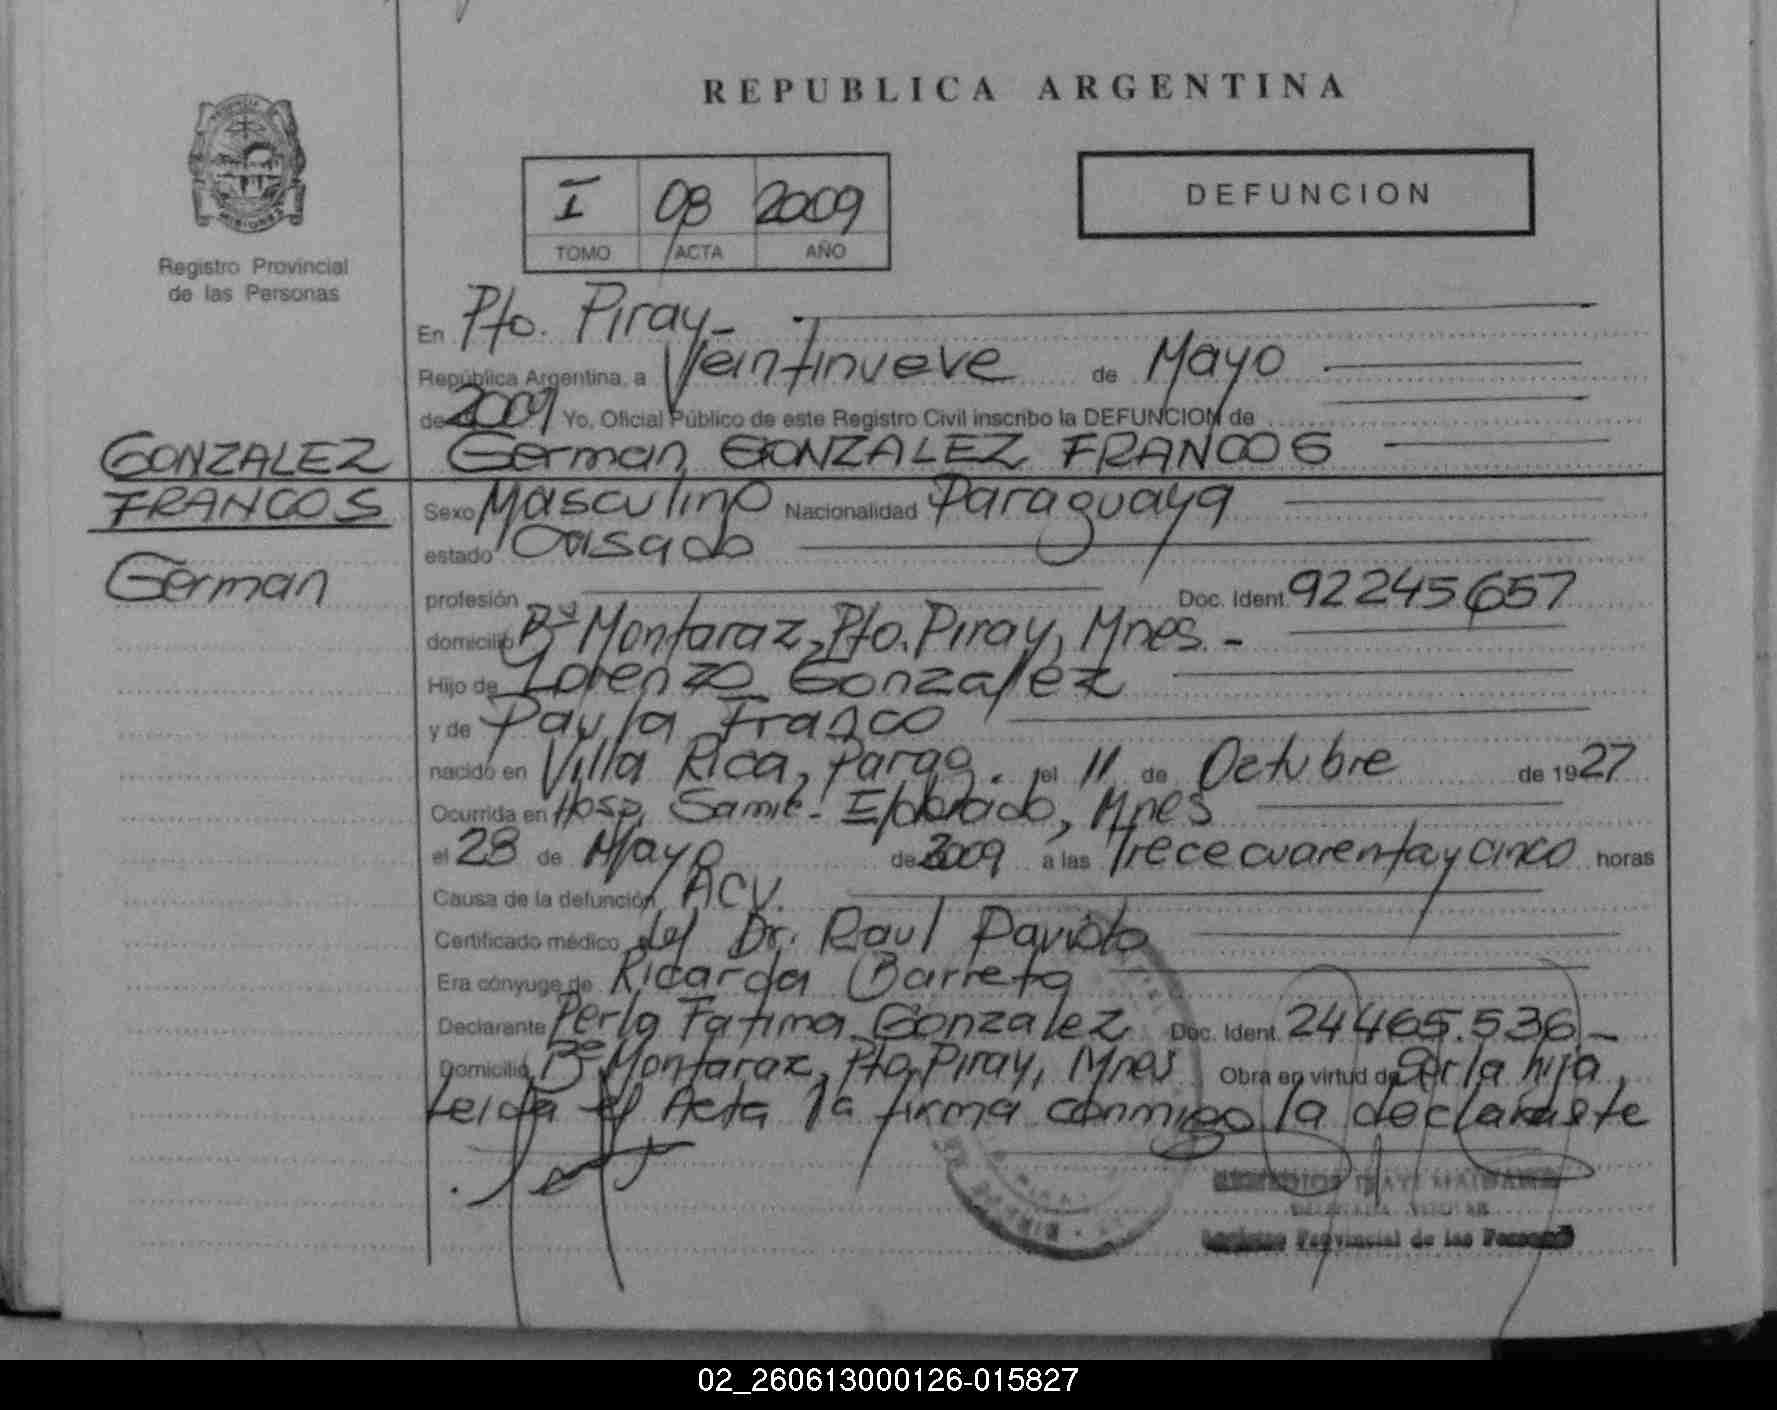 REPUBLICA ARGENTINA
I 08 2009
TOMO ACTA AÑO
DEFUNCION
MISIONES
Registro Provincial
de las Personas
En Pto. Piray-
República Argentina, a Veintinueve de Mayo
de 2009 Yo, Oficial Público de este Registro Civil inscribo la DEFUNCION de
GONZALEZ
FRANCOS
German
German GONZALEZ FRANCOS
Sexo Masculino Nacionalidad Paraguaya
estado Casado
profesión Doc. Ident. 92245657
domicilio Bº Montaraz, Pto. Piray, Mnes. -
Hijo de Lorenzo Gonzalez
y de Paula Franco
nacido en Villa Rica, Parag. el 11 de Octubre de 1927
Ocurrida en Hosp. Samic- Eldorado, Mnes
el 28 de Mayo de 2009 a las Trece cuarenta y cinco horas
Causa de la defunción ACV.
Certificado médico del Dr. Raul
Era cónyuge de Ricarda Barreto
Declarante Perla Fatima Gonzalez Doc. Ident. 24465.536-
Domicilio Bº Montaraz, Pto. Piray, Mnes Obra en virtud de Ser la hija,
Leida el Acta la firma conmigo la declarante
Provincial de las Personas
02_260613000126-015827